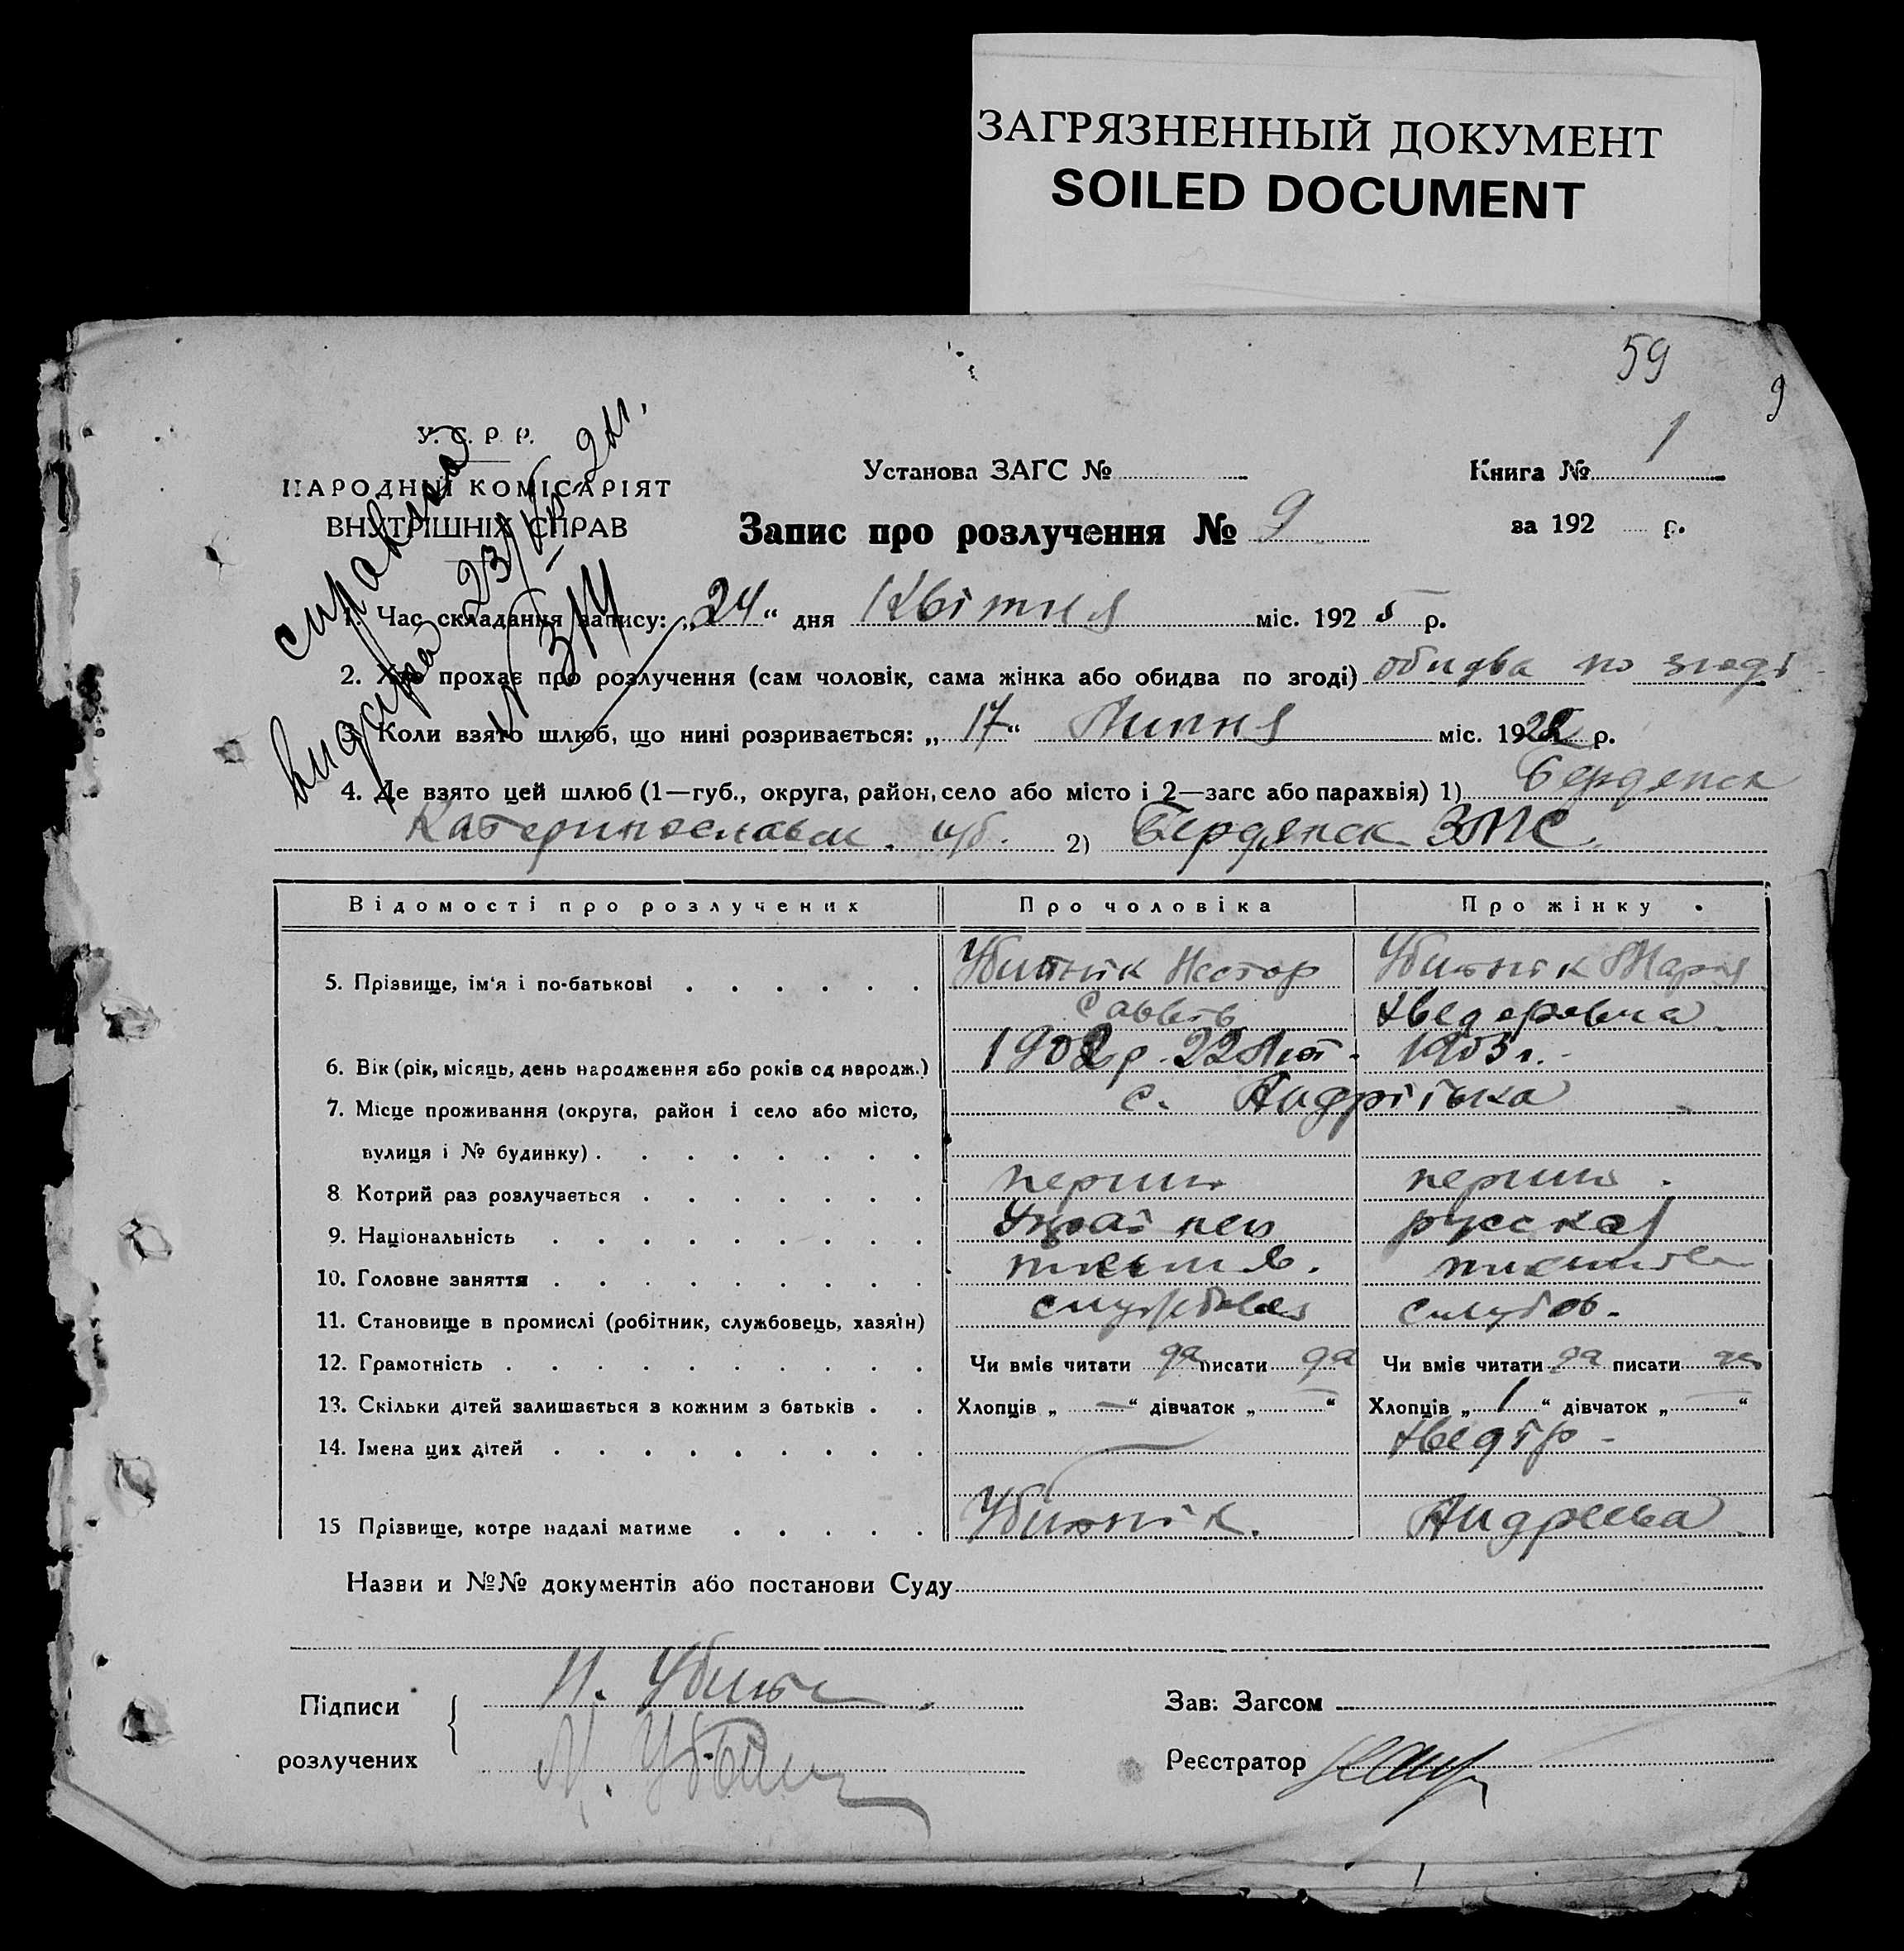 ЗАГРЯЗНЕННЫЙ ДОКУМЕНТ
SOILED DOCUMENT
59
9
У. С. Р. Р.
НАРОДНІЙ КОМІСАРІЯТ
ВНУТРІШНІХ СПРАВ
справка
Установа ЗАГС №
Книга № 1
Запис про розлучення № 9
за 192 р.
1. Час складання запису: „24“ дня Квітня міс. 1925 р.
2. Хто прохає про розлучення (сам чоловік, сама жінка або обидва по згоді) обидва по згоді
3. Коли взято шлюб, що нині розривається: „17“ Липня міс. 1922 р.
4. Де взято цей шлюб (1—губ., округа, район, село або місто і 2—загс або парахвія) 1) Бердянск
Катеринославск. губ. 2) Бердянск ЗАГС.
Відомості про розлучених
Про чоловіка
Про жінку
5. Прізвище, ім'я і по-батькові
Нестор
Марія
6. Вік (рік, місяць, день народження або років од народж.) 1902 р. 22 Лют. 1903 г.
7. Місце проживання (округа, район і село або місто, с. Андріївка
вулиця і № будинку)
8 Котрий раз розлучається перший перший
9. Національність Украінец русская
10. Головне заняття
11. Становище в промислі (робітник, службовець, хазяїн) службовец служов.
12. Грамотність Чи вміє читати да писати да Чи вміє читати да писати да
13. Скільки дітей залишається з кожним з батьків Хлопців „—“ дівчаток „—“ Хлопців „1“ дівчаток „—“
14. Імена цих дітей — Хведір -
15 Прізвище, котре надалі матиме Андреева
Назви и №№ документів або постанови Суду
Підписи
розлучених
Зав: Загсом
Реєстратор